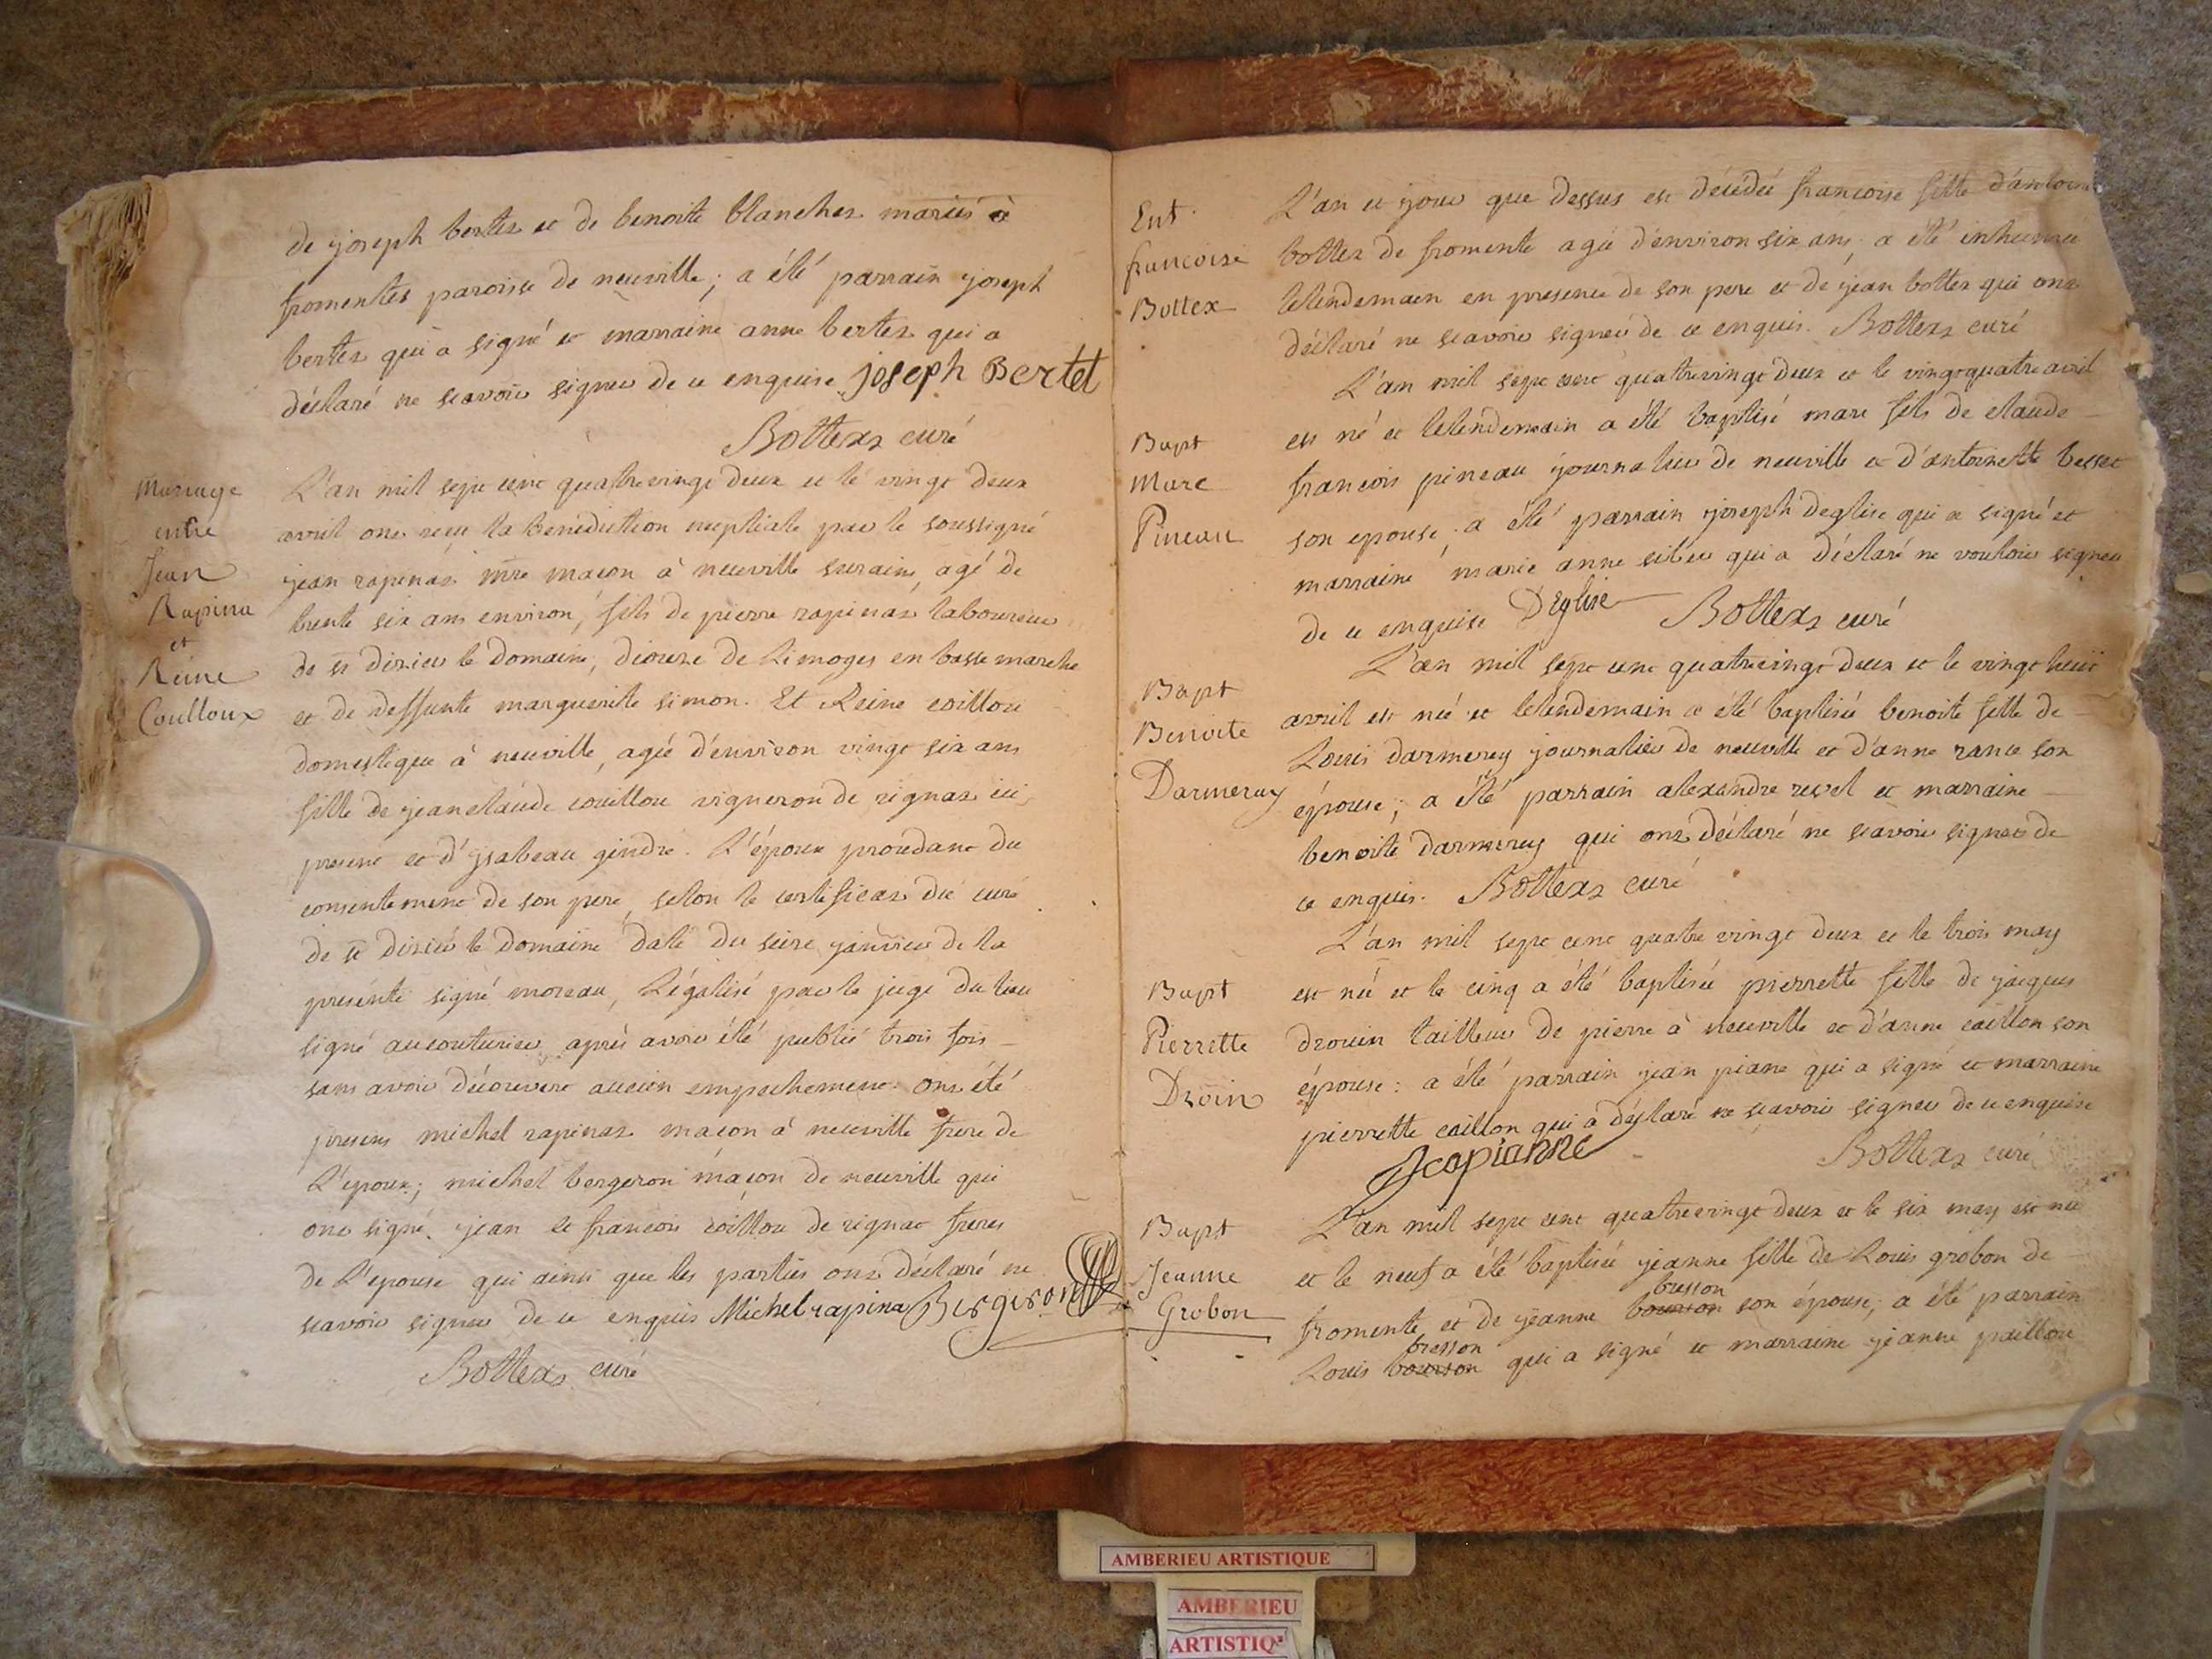 de joseph bertet et de benoite blanchet mariés à
fromentes paroisse de neuville; a été parrain joseph
bertet qui a signé et marraine anne bertet qui a
déclaré ne scavoir signer de ce enquise joseph Bertet
Bottex curé
Mariage
entre
Jean
Rapina
et
Reine
Couilloux
L'an mil sept cent quatrevingt deux et le vingt deux
avril ont reçu la benediction nuptiale par le soussigné
jean rapinat mre maçon à neuville surain, agé de
trente six ans environ, fils de pierre rapinat laboureur
de st dizier le domaine, diocese de Limoges en basse marche
et de deffunte marguerite simon. Et Reine coillou
domestique à neuville, agée d'environ vingt six ans
fille de jean claude couillou vigneron de rignat ici
present et d'ysabeau gindre. L'époux procedant du
consentement de son pere, selon le certificat du curé
de st dizier le domaine daté du seize janvier de la
presente signé moreau, Légalisé par le juge du lieu
signé aucouturier, après avoir été publié trois fois
sans avoir découvert aucun empechement ont été
presens michel rapinat maçon à neuville frere de
L'epoux; michel bergeron maçon de neuville qui
ont signé. jean et francois coillou de rignat freres
de L'epouse qui ainsi que les parties ont déclaré ne
scavoir signer de ce enquis Michel rapina Bergeron
Bottex curé
Ent.
francoise
Bottex
L'an et jour que dessus est décédée francoise fille d'antoine
bottex de fromente agée d'environ six ans a été inhumée
lelendemain en presence de son pere et de jean bottex qui ont
déclaré ne scavoir signer de ce enquis. Bottex curé
Bapt
Marc
Pineau
L'an mil sept cent quatrevingt deux et le vingtquatre avril
est né et lelendemain a été baptisé marc fils de claude
francois pineau journalier de neuville et d'antoinette
son epouse. a été parrain joseph deglise qui a signé et
marraine marie anne qui a déclaré ne vouloir signer
de ce enquise DEglise Bottex curé
Bapt
Benoite
Darmeray
L'an mil sept cent quatrevingt deux et le vingt huit
avril est née et lelendemain a été baptisée benoite fille de
Louis darmerey journalier de neuville et d'anne rance son
épouse; a été parrain alexandre revel et marraine
benoite darmerey qui ont déclaré ne scavoir signer de
ce enquis. Bottex curé
Bapt
Pierrette
Droin
L'an mil sept cent quatre vingt deux et le trois may
est née et le cinq a été baptisée pierrette fille de jacques
drouin tailleur de pierre à neuville et d'anne caillon son
épouse: a été parrain jean piane qui a signé et marraine
pierrette caillon qui a déclaré ne scavoir signer de ce enquise
Bottex curé
Bapt
Jeanne
Grobon
L'an mil sept cent quatrevingt deux et le six may est née
et le neuf a été baptisée jeanne fille de Louis grobon de
fromente et de jeanne bresson son épouse; a été parrain
Louis bresson qui a signé et marraine jeanne paillou
AMBERIEU ARTISTIQUE
AMBERIEU
ARTISTIQ